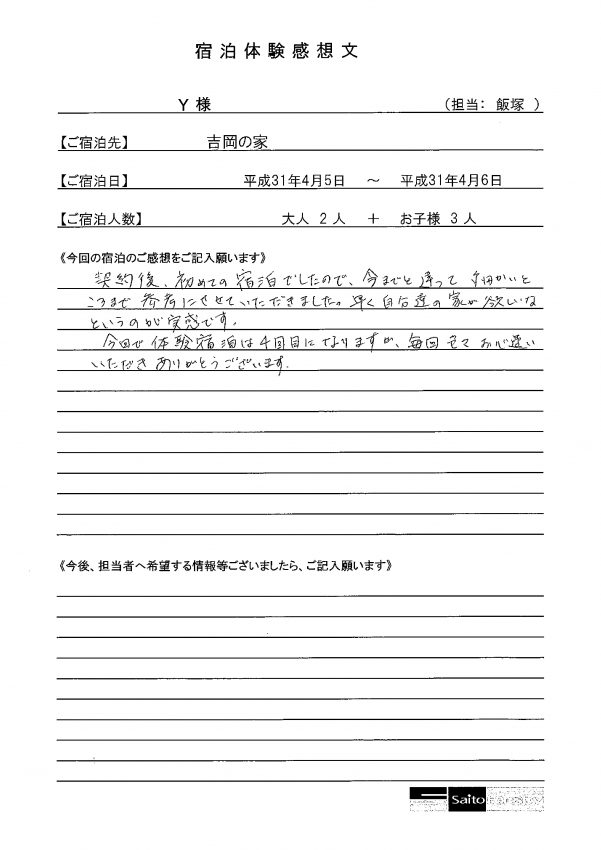 宿泊体験感想文
Y 様 (担当: 飯塚 )
【ご宿泊先】 吉岡の家
【ご宿泊日】 平成31年4月5日 ～ 平成31年4月6日
【ご宿泊人数】 大人 2 人 ＋ お子様 3 人
《今回の宿泊のご感想をご記入願います》
契約後、初めての宿泊でしたので、今までと違って細かいと
ころまで参考にさせていただきました。早く自分達の家が欲しいな
というのが実感です。
今回で体験宿泊は4回目になりますが、毎回 お心遣い
いただきありがとうございます。
《今後、担当者へ希望する情報等ございましたら、ご記入願います》
Saito